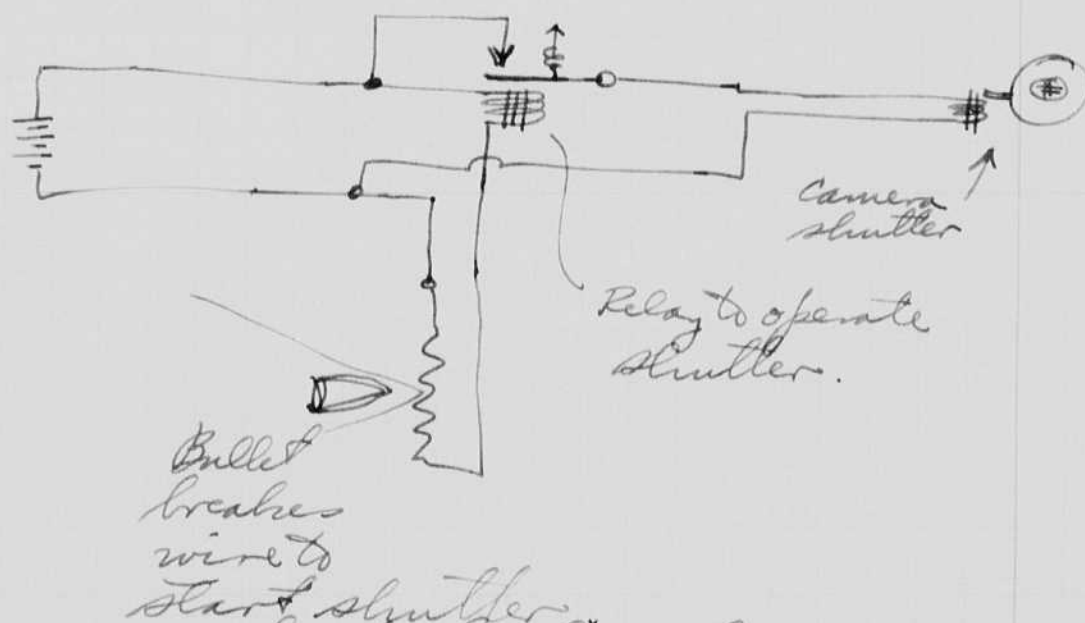 Camera
shutter
Relay to operate
shutter.
Bullet
breakes
wire to
start shutter